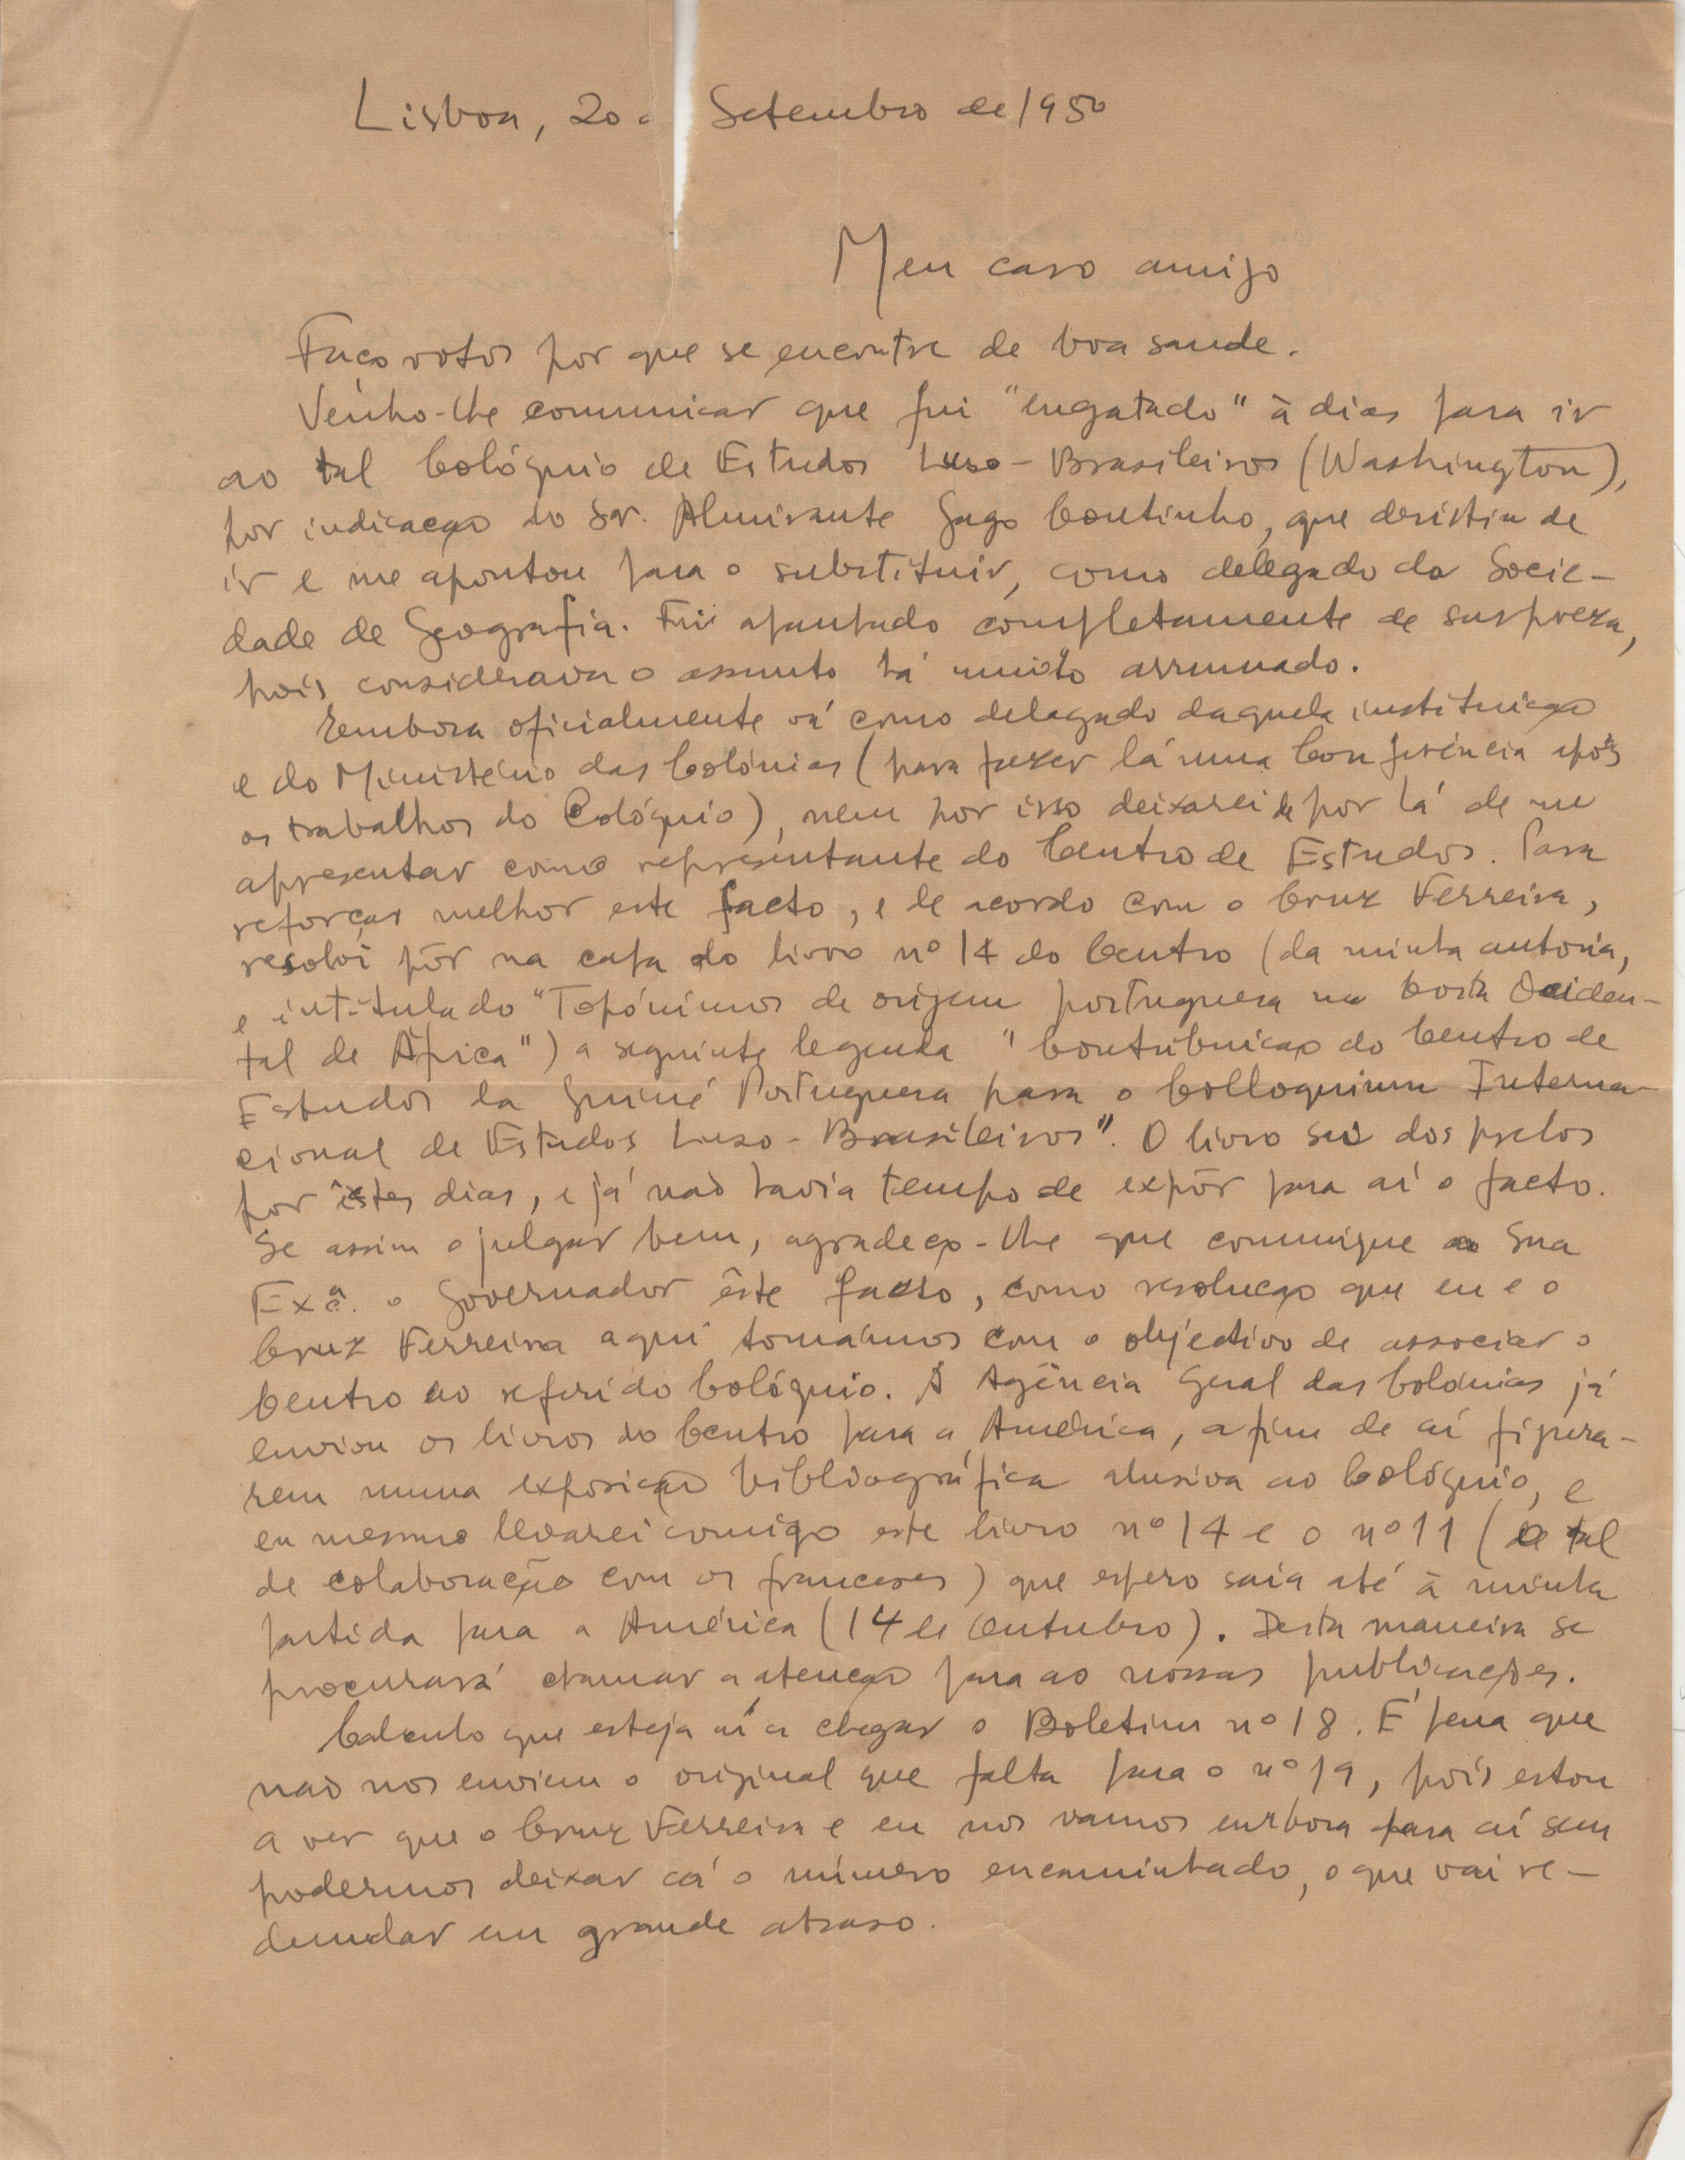 Lisboa, 20 d Setembro de 1950
Meu caro amigo
Faço votos por que se encontre de boa saude.
Venho-lhe comunicar que fui "engatado" à dias para ir
ao tal Colóquio de Estudos Luso-Brasileiros (Washington),
por indicação do Sr. Almirante Gago Coutinho, que desistiu de
ir e me apontou para o substituir, como delegado da Socie-
dade de Geografia. Fui apanhado completamente de surpreza,
pois considerava o assunto há muito arrumado.
Embora oficialmente vá como delegado daquela instituição
e do Ministério das Colónias (para fazer lá uma Conferência após
os trabalhos do Colóquio), nem por isso deixarei de por lá de me
apresentar como representante do Centro de Estudos. Para
reforçar melhor este facto, e de acordo com o Cruz Ferreira,
resolvi pôr na capa do livro nº 14 do Centro (da minha autoria,
e intitulado "Topónimos de origem portuguesa na Costa Ociden-
tal de África") a seguinte legenda "Contribuição do Centro de
Estudos da Guiné Portuguesa para o Colloquium Interna-
cional de Estudos Luso-Brasileiros". O livro sai dos prelos
por êstes dias, e já não havia tempo de expôr para aí o facto.
Se assim o julgar bem, agradeço-lhe que comunique a Sua
Exª. o Governador êste facto, como resolução que eu e o
Cruz Ferreira aqui tomámos com o objectivo de associar o
Centro ao referido Colóquio. A Agência Geral das Colónias já
enviou os livros do Centro para a América, a fim de aí figura-
rem numa exposição bibliográfica alusiva ao Colóquio, e
eu mesmo levarei comigo este livro nº 14 e o nº 11 (o tal
de colaboração com os franceses) que espero saia até à minha
partida para a América (14 de Outubro). Desta maneira se
procurará chamar a atenção para as nossas publicações.
Calculo que esteja aí a chegar o Boletim nº 18. É pena que
não nos enviem o original que falta para o nº 19, pois estou
a ver que o Cruz Ferreira e eu nos vamos embora para aí sem
podermos deixar cá o número encaminhado, o que vai re-
dundar em grande atraso.